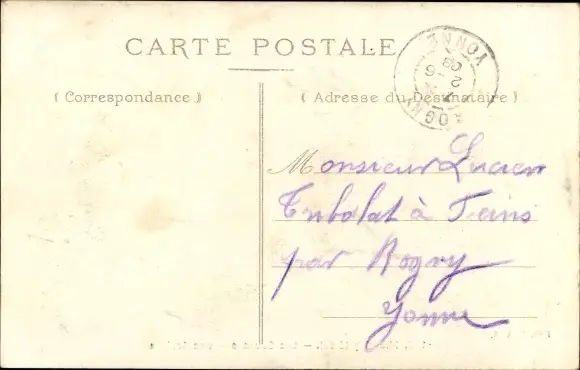 CARTE POSTALE
( Correspondance )
( Adresse du Destinataire )
ROGNY
YONNE
Monsieur Lucien
Tribolat à Feins
par Rogny
Yonne